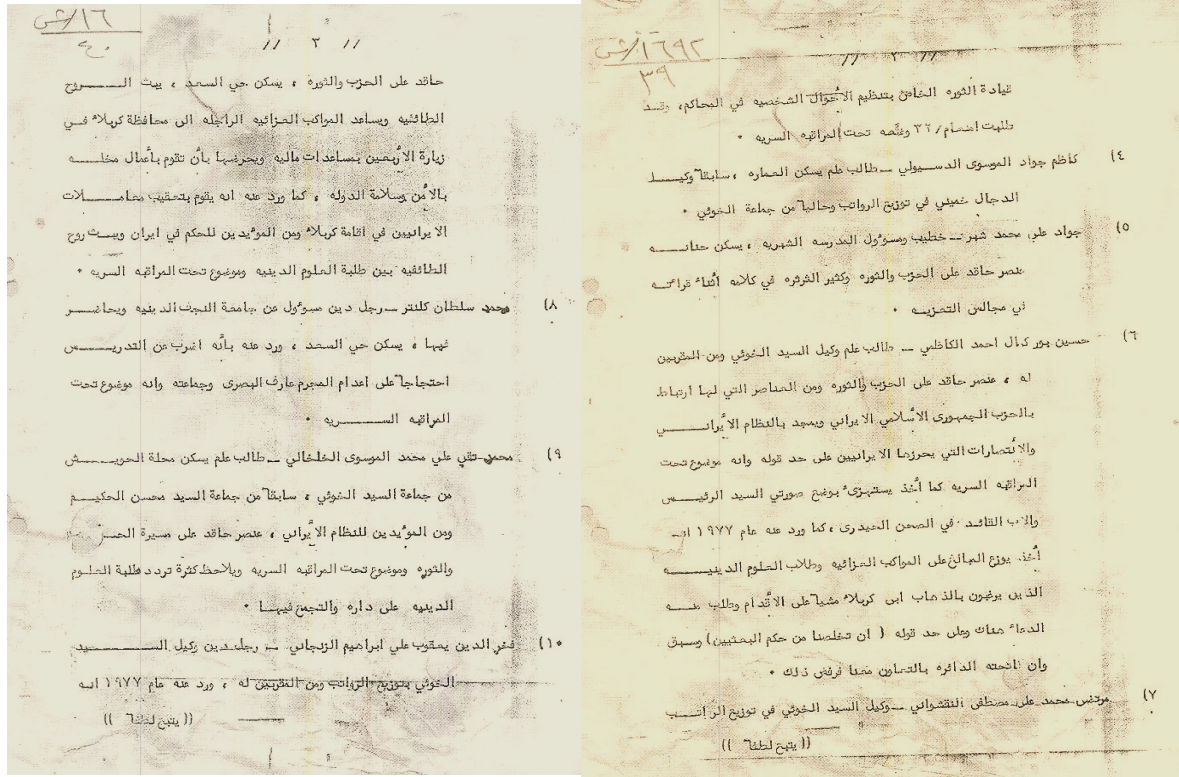 ١٦٩٢/ش
٣٩
// ٢ //
قيادة الثوره الخاص بتنظيم الأحوال الشخصيه في المحاكم، وقد
طلبت اضمام/٣٢ وضعه تحت المراقبه السريه .
٤) كاظم جواد الموسوى الدسبولي ـ طالب علم يسكن العماره ، سابقاً وكيل
الدجال خميني في توزيع الرواتب وحالياً من جماعة الخوئي .
٥) جواد علي محمد شهر ـ خطيب ومسؤول المدرسه الشهريه ، يسكن حنانه
عنصر حاقد على الحزب والثوره وكثير الثرثره في كلامه أثناء قراءته
في مجالس التعزيه .
٦) حسين بور كمال احمد الكاظمي ـ طالب علم وكيل السيد الخوئي ومن المقربين
له ، عنصر حاقد على الحزب والثوره ومن العناصر التي لها ارتباط
بالحزب الجمهورى الأسلامي الايراني ويمجد بالنظام الأيراني
والأنتصارات التي يحرزها الايرانيين على حد قوله وانه موضوع تحت
المراقبه السريه كما أخذ يستهزئ بوضع صورتي السيد الرئيس
والاب القائد في الصحن الحيدرى ، كما ورد عنه عام ١٩٧٧ انه
أخذ يوزع المبالغ على المواكب العزائيه وطلاب العلوم الدينيه
الذين يرغبون بالذهاب ابى كربلاء مشياً على الأقدام وطلب منه
الدعاء هناك وعلى حد قوله ( ان تخلصنا من حكم البعثيين) وسبق
وان فاتحته الدائره بالتعاون معنا فرفض ذلك .
٧) مرتضى محمد علي مصطفى النقشواني ـ وكيل السيد الخوئي في توزيع الرواتب
(( يتبع لطفاً ))
١٦/ش
٤٠
// ٣ //
حاقد على الحزب والثوره ، يسكن حي السعد ، يبث الروح
الطائفيه ويساعد المواكب العزائيه الراجله الى محافظة كربلاء في
زيارة الأربعين بمساعدات ماليه ويحرضها بأن تقوم بأعمال مخله
بالأمن وسلامة الدوله ، كما ورد عنه انه يقوم بتعقيب معاملات
الايرانيين في اقامة كربلاء ومن المؤيدين للحكم في ايران ويبث روح
الطائفيه بين طلبة العلوم الدينيه وموضوع تحت المراقبه السريه .
٨) محمد سلطان كلنتر ـ رجل دين مسؤول عن جامعة النجف الدينيه ويحاضر
فيها ، يسكن حي السعد ، ورد عنه بأنه اضرب عن التدريس
احتجاجاً على اعدام المجرم عارف البصرى وجماعته وانه موضوع تحت
المراقبه السريه .
٩) محمد تقي علي محمد الموسوى الخلخالي ـ طالب علم يسكن محلة الحويش
من جماعة السيد الخوئي ، سابقاً من جماعة السيد محسن الحكيم
ومن المؤيدين للنظام الأيراني ، عنصر حاقد على مسيرة الحزب
والثوره وموضوع تحت المراقبه السريه ويلاحظ كثرة تردد طلبة العلوم
الدينيه على داره والتجمع فيها .
١٠) فخر الدين يعقوب علي ابراهيم الزنجاني ـ رجل دين وكيل السيد
الخوئي بتوزيع الرواتب ومن المقربين له ، ورد عنه عام ١٩٧٧ انه
(( يتبع لطفاً ))